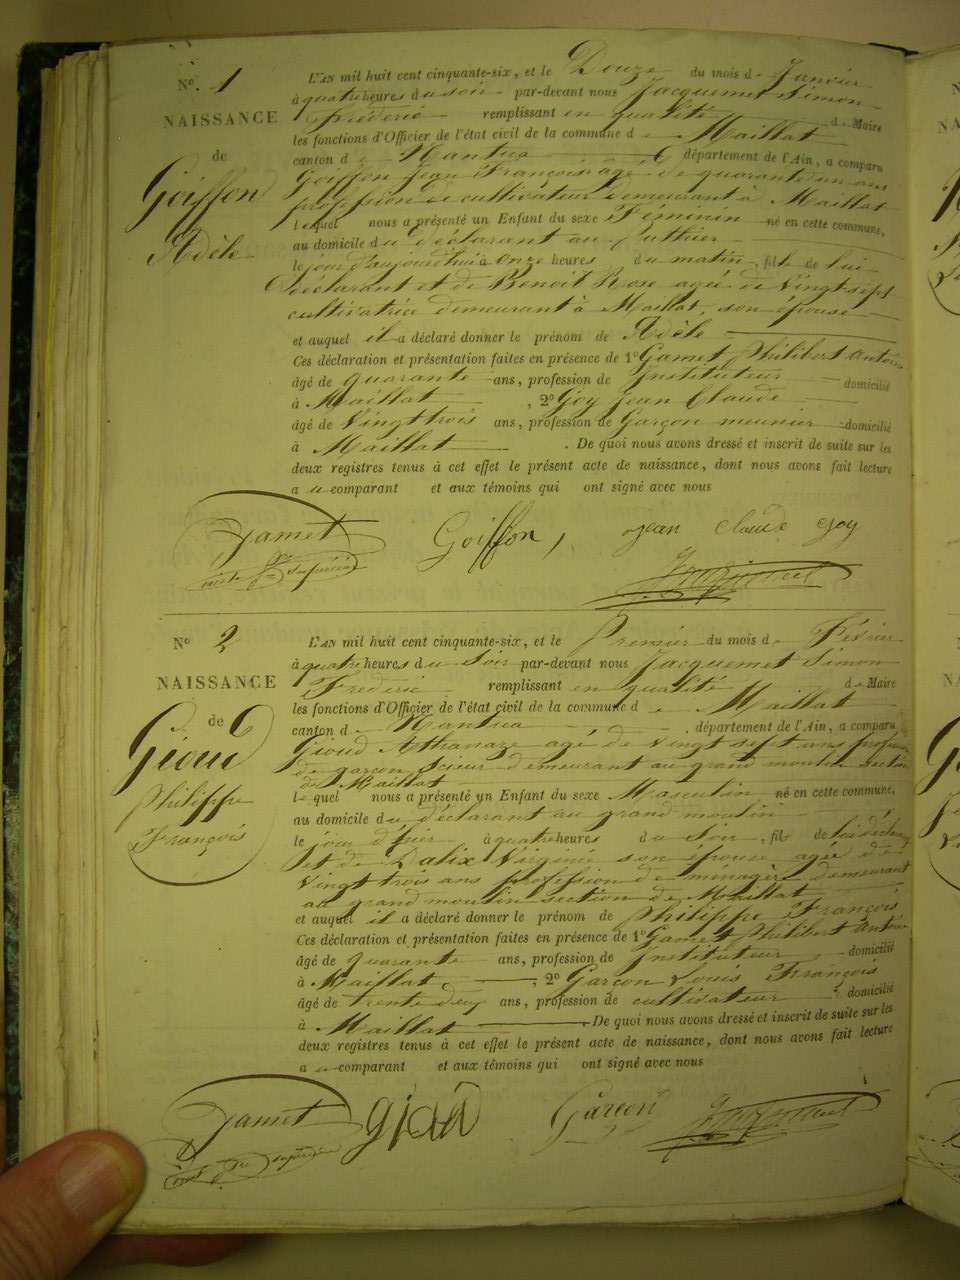 N°. 1
NAISSANCE
de
Goiffon
Adèle
L'AN mil huit cent cinquante-six, et le Douze du mois de Janvier
à quatre heures du soir par-devant nous Jacquemet Simon
Frédéric remplissant en qualité de Maire
les fonctions d'Officier de l'état civil de la commune de Maillat
canton de Nantua département de l'Ain, a comparu
Goiffon Jean François agé de quarante un ans
profession de cultivateur demeurant à Maillat
lequel nous a présenté un Enfant du sexe Féminin né en cette commune,
au domicile du déclarant au
le jour d'aujourd'hui à onze heures du matin, fille de lui
déclarant et de Benoit Rose agée de vingt-sept
cultivatrice demeurant à Maillat, son épouse
et auquel il a déclaré donner le prénom de Adèle
Ces déclaration et présentation faites en présence de 1° Gamet Philibert Antoine
âgé de quarante ans, profession de Instituteur domicilié
à Maillat, 2° Goy Jean Claude
âgé de vingt trois ans, profession de Garçon meunier domicilié
à Maillat. De quoi nous avons dressé et inscrit de suite sur les
deux registres tenus à cet effet le présent acte de naissance, dont nous avons fait lecture
a u comparant et aux témoins qui ont signé avec nous
Gamet Goiffon, Jean Claude Goy
Jacquemet
N° 2
NAISSANCE
de
Gioud
Philippe
François
L'AN mil huit cent cinquante-six, et le Premier du mois de Février
à quatre heures du soir par-devant nous Jacquemet Simon
Frédéric remplissant en qualité de Maire
les fonctions d'Officier de l'état civil de la commune de Maillat
canton de Nantua département de l'Ain, a comparu
Gioud Athanaze agé de vingt sept ans profession
de garçon scieur demeurant au grand moulin section
de Maillat
lequel nous a présenté un Enfant du sexe Masculin né en cette commune,
au domicile du déclarant au grand moulin
le jour d'hier à quatre heures du soir, fils de lui déclarant
et de Dalix Virginie son épouse agée de
vingt trois ans profession de ménagère demeurant
au grand moulin section de Maillat
et auquel il a déclaré donner le prénom de Philippe François
Ces déclaration et présentation faites en présence de 1° Gamet Philibert Antoine
âgé de quarante ans, profession de Instituteur domicilié
à Maillat, 2° Garçon Louis François
âgé de trente deux ans, profession de cultivateur domicilié
à Maillat. De quoi nous avons dressé et inscrit de suite sur les
deux registres tenus à cet effet le présent acte de naissance, dont nous avons fait lecture
a u comparant et aux témoins qui ont signé avec nous
Gamet gioud Garçon Jacquemet